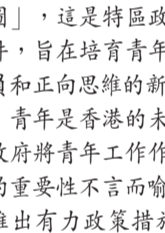 圖」，這是特區政
件，旨在培育青年
員和正向思維的新
青年是香港的未
政府將青年工作作
的重要性不言而喻
推出有力政策措施